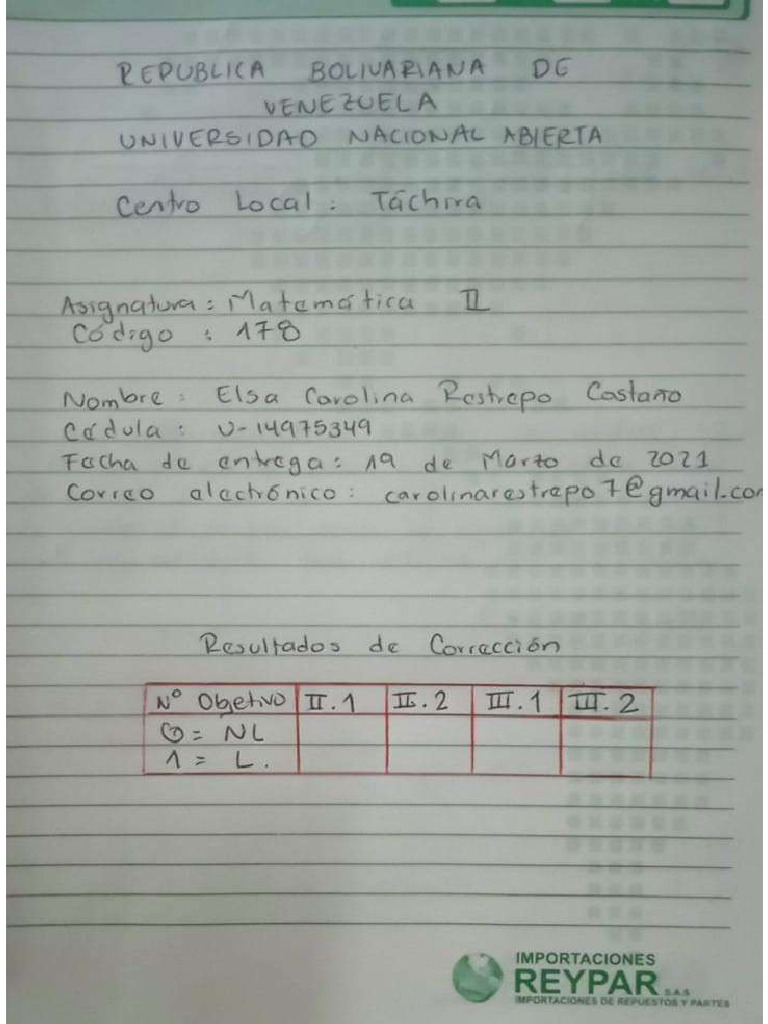 REPUBLICA BOLIVARIANA DE
VENEZUELA
UNIVERSIDAD NACIONAL ABIERTA
Centro Local: Táchira
Asignatura: Matemática II
Código : 178
Nombre: Elsa Carolina Restrepo Castaño
Cédula: V-14975349
Fecha de entrega: 19 de Marzo de 2021
Correo electrónico: carolinarestrepo7@gmail.com
Resultados de Corrección
Nº Objetivo II.1 II.2 III.1 III.2
0 = NL
1 = L.
IMPORTACIONES
REYPAR S.A.S
IMPORTACIONES DE REPUESTOS Y PARTES